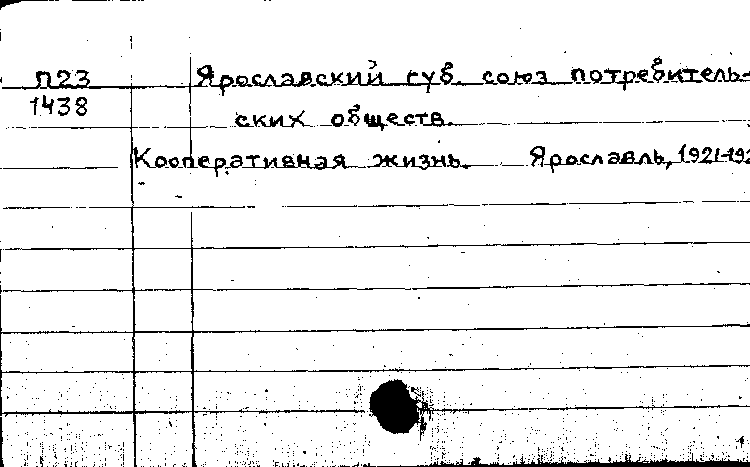 П23 Ярославский губ. союз потребитель-
1438
ских обществ.
Кооперативная жизнь. Ярославль, 1921-192